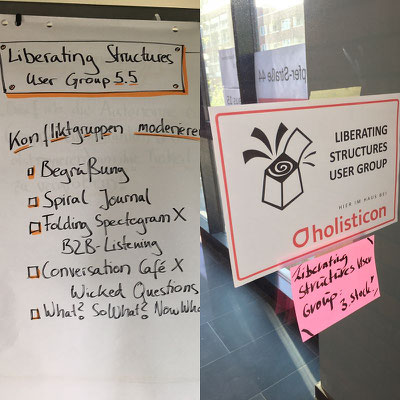 Liberating Structures
User Group 5.5
Konfliktgruppen moderieren
Begrüßung
Spiral Journal
Folding Spectogram X
B2B-Listening
Conversation Café X
Wicked Questions
What? So What? Now Wha
pfer-Straße 44
LIBERATING
STRUCTURES
USER GROUP
HIER IM HAUS BEI
holisticon
Liberating
Structures User
Group:
3. Stock!